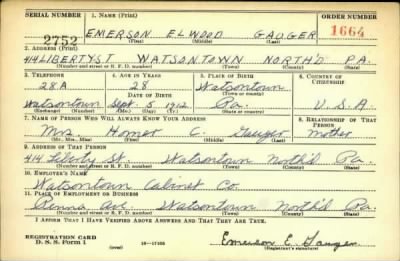 SERIAL NUMBER 1. NAME (Print) ORDER NUMBER
2752 EMERSON ELWOOD GAUGER 1664
(First) (Middle) (Last)
2. ADDRESS (Print)
414 LIBERTY ST WATSONTOWN NORTH'D PA.
(Number and street or R. F. D. number) (Town) (County) (State)
3. TELEPHONE 4. AGE IN YEARS 5. PLACE OF BIRTH 6. COUNTRY OF CITIZENSHIP
28A 28 Watsontown
DATE OF BIRTH (Town or county)
Watsontown Sept. 5 1912 Pa. U.S.A.
(Exchange) (No.) (Mo.) (Day) (Yr.) (State or country)
7. NAME OF PERSON WHO WILL ALWAYS KNOW YOUR ADDRESS 8. RELATIONSHIP OF THAT PERSON
Mrs. Homer C. Gauger mother
(Mr., Mrs., Miss) (First) (Middle) (Last)
9. ADDRESS OF THAT PERSON
414 Liberty St. Watsontown North'd Pa.
(Number and street or R. F. D. number) (Town) (County) (State)
10. EMPLOYER'S NAME
Watsontown Cabinet Co.
11. PLACE OF EMPLOYMENT OR BUSINESS
Penna Ave Watsontown North'd Pa.
(Number and street or R. F. D. number) (Town) (County) (State)
I AFFIRM THAT I HAVE VERIFIED ABOVE ANSWERS AND THAT THEY ARE TRUE.
REGISTRATION CARD
D. S. S. Form 1 (over) Emerson E. Gauger
(Registrant's signature)